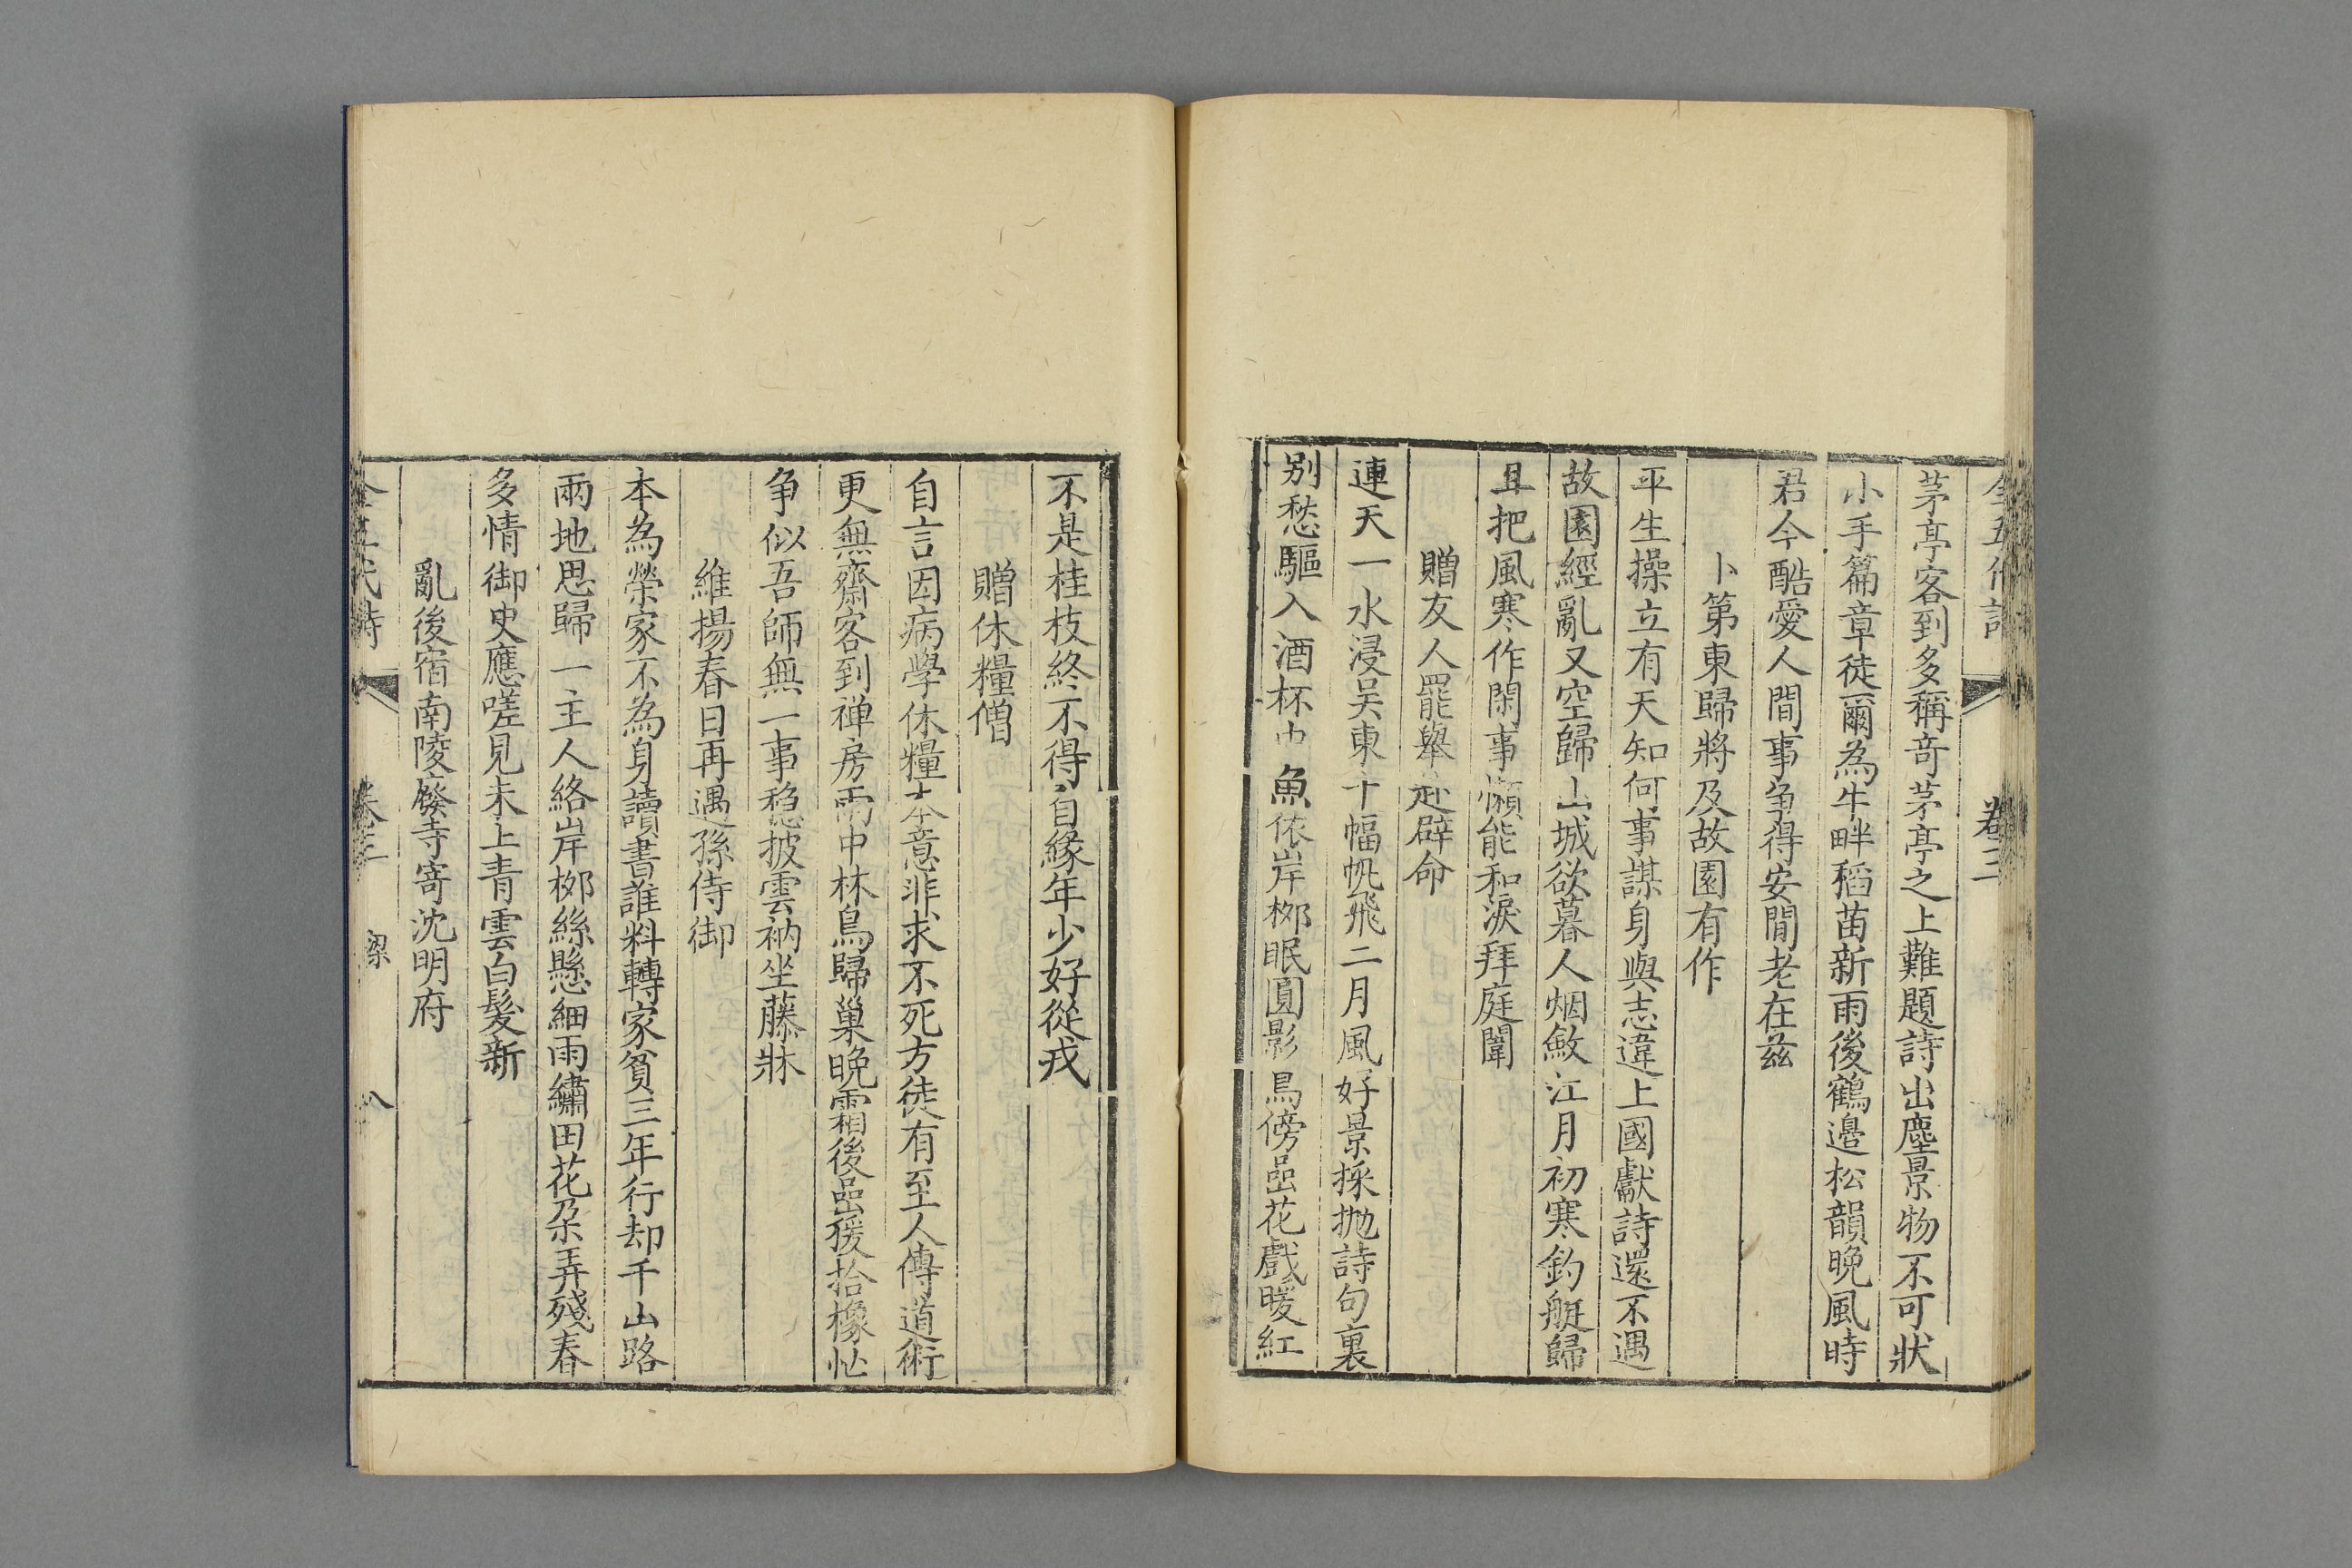 全五代詩 卷三
茅亭客到多稱奇茅亭之上難題詩出塵景物不可狀
小手篇章徒爾為牛畔稻苗新雨後鶴邉松韻晚風時
君今酷愛人間事爭得安閒老在兹
卜第東歸將及故園有作
平生操立有天知何事謀身與志違上國獻詩還不遇
故園經亂又空歸山城欲暮人烟斂江月初寒釣艇歸
且把風寒作閑事懶能和淚拜庭闈
贈友人罷舉赴辟命
連天一水浸吴東十幅帆飛二月風好景採抛詩句裏
别愁驅入酒杯中魚依岸桞眠圓影鳥傍喦花戲暖紅
不是桂枝終不得自緣年少好從戎
贈休糧僧
自言因病學休糧本意非求不死方徒有至人傳道術
更無齋客到禅房雨中林鳥歸巢晚霜後喦猨拾橡忙
争似吾師無一事稳披雲衲坐藤牀
維揚春日再遇孫侍御
本為榮家不為身讀書誰料轉家貧三年行却千山路
兩地思歸一主人絡岸桞絲懸細雨繡田花朶弄殘春
多情御史應嗟見未上青雲白髮新
亂後宿南陵廢寺寄沈明府
全五代詩 卷三 梁 八